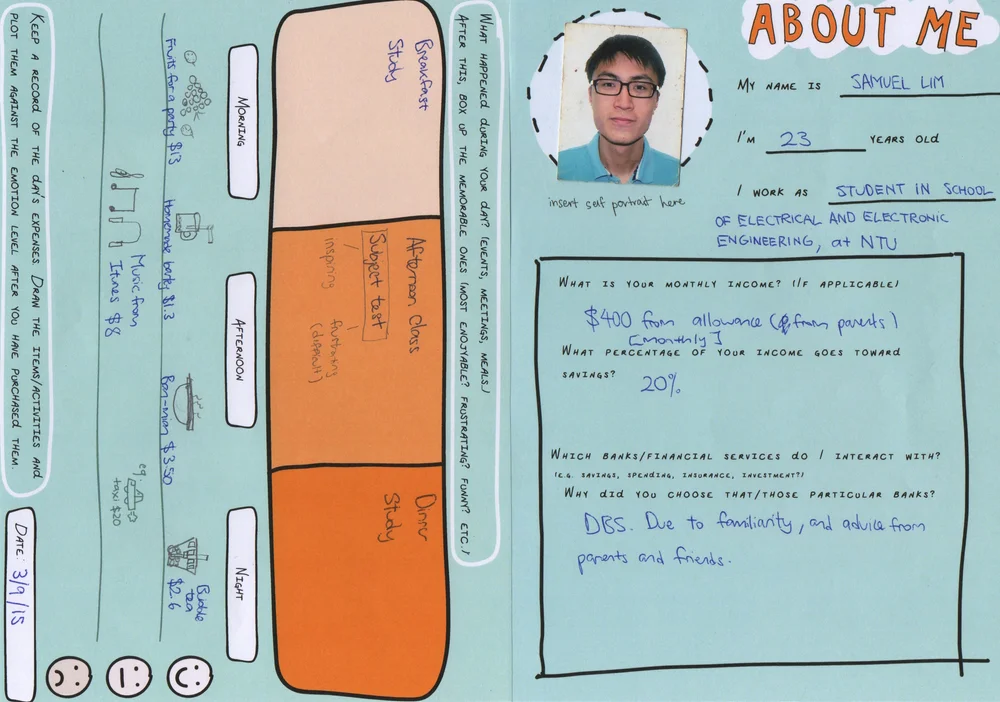 ABOUT ME
MY NAME IS SAMUEL LIM
I'M 23 YEARS OLD
I WORK AS STUDENT IN SCHOOL
OF ELECTRICAL AND ELECTRONIC
ENGINEERING, at NTU
insert self portrait here
WHAT IS YOUR MONTHLY INCOME? (IF APPLICABLE)
$400 from allowance (from parents)
[monthly]
WHAT PERCENTAGE OF YOUR INCOME GOES TOWARD
SAVINGS? 20%
WHICH BANKS/FINANCIAL SERVICES DO I INTERACT WITH?
(E.G. SAVINGS, SPENDING, INSURANCE, INVESTMENT?)
WHY DID YOU CHOOSE THAT/THOSE PARTICULAR BANKS?
DBS. Due to familiarity, and advice from
parents and friends.
WHAT HAPPENED DURING YOUR DAY? (EVENTS, MEETINGS, MEALS.)
AFTER THIS, BOX UP THE MEMORABLE ONES (MOST ENJOYABLE? FRUSTRATING? FUNNY? ETC.)
Breakfast
Study
Afternoon class
Subject test
inspiring
frustrating
(difficult)
Dinner
Study
MORNING
AFTERNOON
NIGHT
Fruits for a party $13
Homemade barley $1.3
Ban-mian $3.50
Bubble
tea
$2.6
Music from
Itunes $8
eg.
taxi $20
KEEP A RECORD OF THE DAY'S EXPENSES. DRAW THE ITEMS/ACTIVITIES AND
PLOT THEM AGAINST THE EMOTION LEVEL AFTER YOU HAVE PURCHASED THEM.
DATE: 3/9/15